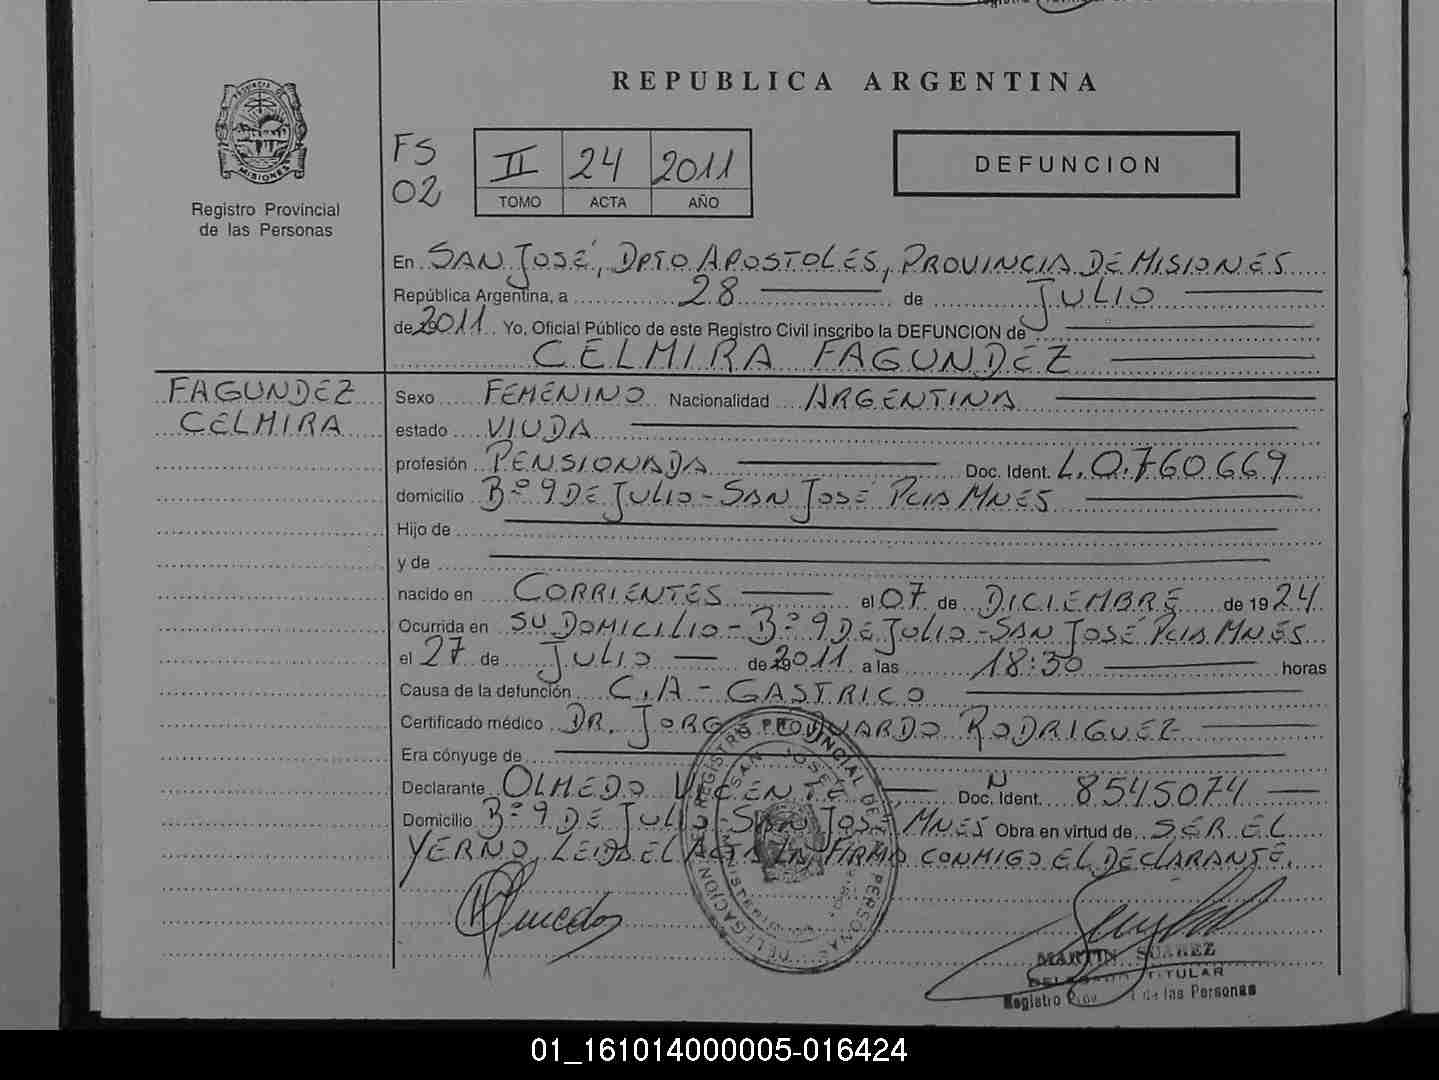 REPUBLICA ARGENTINA
PROVINCIA DE
MISIONES
Registro Provincial
de las Personas
FS
02
II 24 2011
TOMO ACTA AÑO
DEFUNCION
En SAN JOSÉ, DPTO APOSTOLES, PROVINCIA DE MISIONES
República Argentina, a 28 de JULIO
de 2011 Yo, Oficial Público de este Registro Civil inscribo la DEFUNCION de
CELMIRA FAGUNDEZ
FAGUNDEZ
CELMIRA
Sexo FEMENINO Nacionalidad ARGENTINA
estado VIUDA
profesión PENSIONADA Doc. Ident. L.0.760.669
domicilio Bº 9 DE JULIO - SAN JOSÉ PCIA MNES
Hijo de
y de
nacido en CORRIENTES el 07 de DICIEMBRE de 1924
Ocurrida en SU DOMICILIO - Bº 9 DE JULIO - SAN JOSÉ PCIA MNES
el 27 de JULIO de 2011 a las 18:30 horas
Causa de la defunción C.A - GASTRICO
Certificado médico DR. JORGE EDUARDO RODRIGUEZ
Era cónyuge de
Declarante OLMEDO VICENTE Doc. Ident. N 8545074
Domicilio Bº 9 DE JULIO - SAN JOSE, MNES Obra en virtud de SER EL
YERNO, LEIDA EL ACTA LA FIRMA CONMIGO EL DECLARANTE.
Olmedo
DELEGACION DEL REGISTRO PROVINCIAL DE LAS PERSONAS
SAN JOSE
MARTIN SUAREZ
DELEGADO TITULAR
Registro Prov de las Personas
01_161014000005-016424